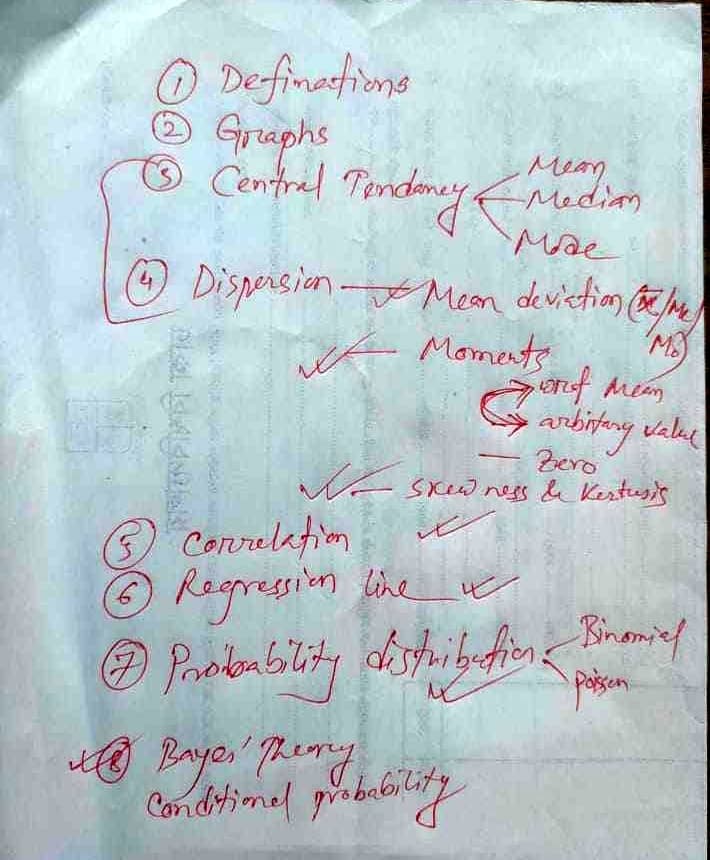 ① Definations
② Graphs
③ Central Tendancy
Mean
Median
Mode
④ Dispersion — Mean deviation (x̄/Me/
Mo)
— Moments
wref Mean
arbitary value
— Zero
— Skewness & Kertusis
⑤ Correlation
⑥ Regression line
⑦ Probability distribution
Binomial
poison
⑧ Bayes' Theory
Conditional probability